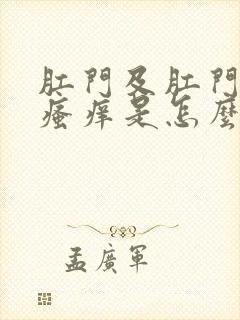 肛門及肛門
瘙痒是怎麼
孟廣軍